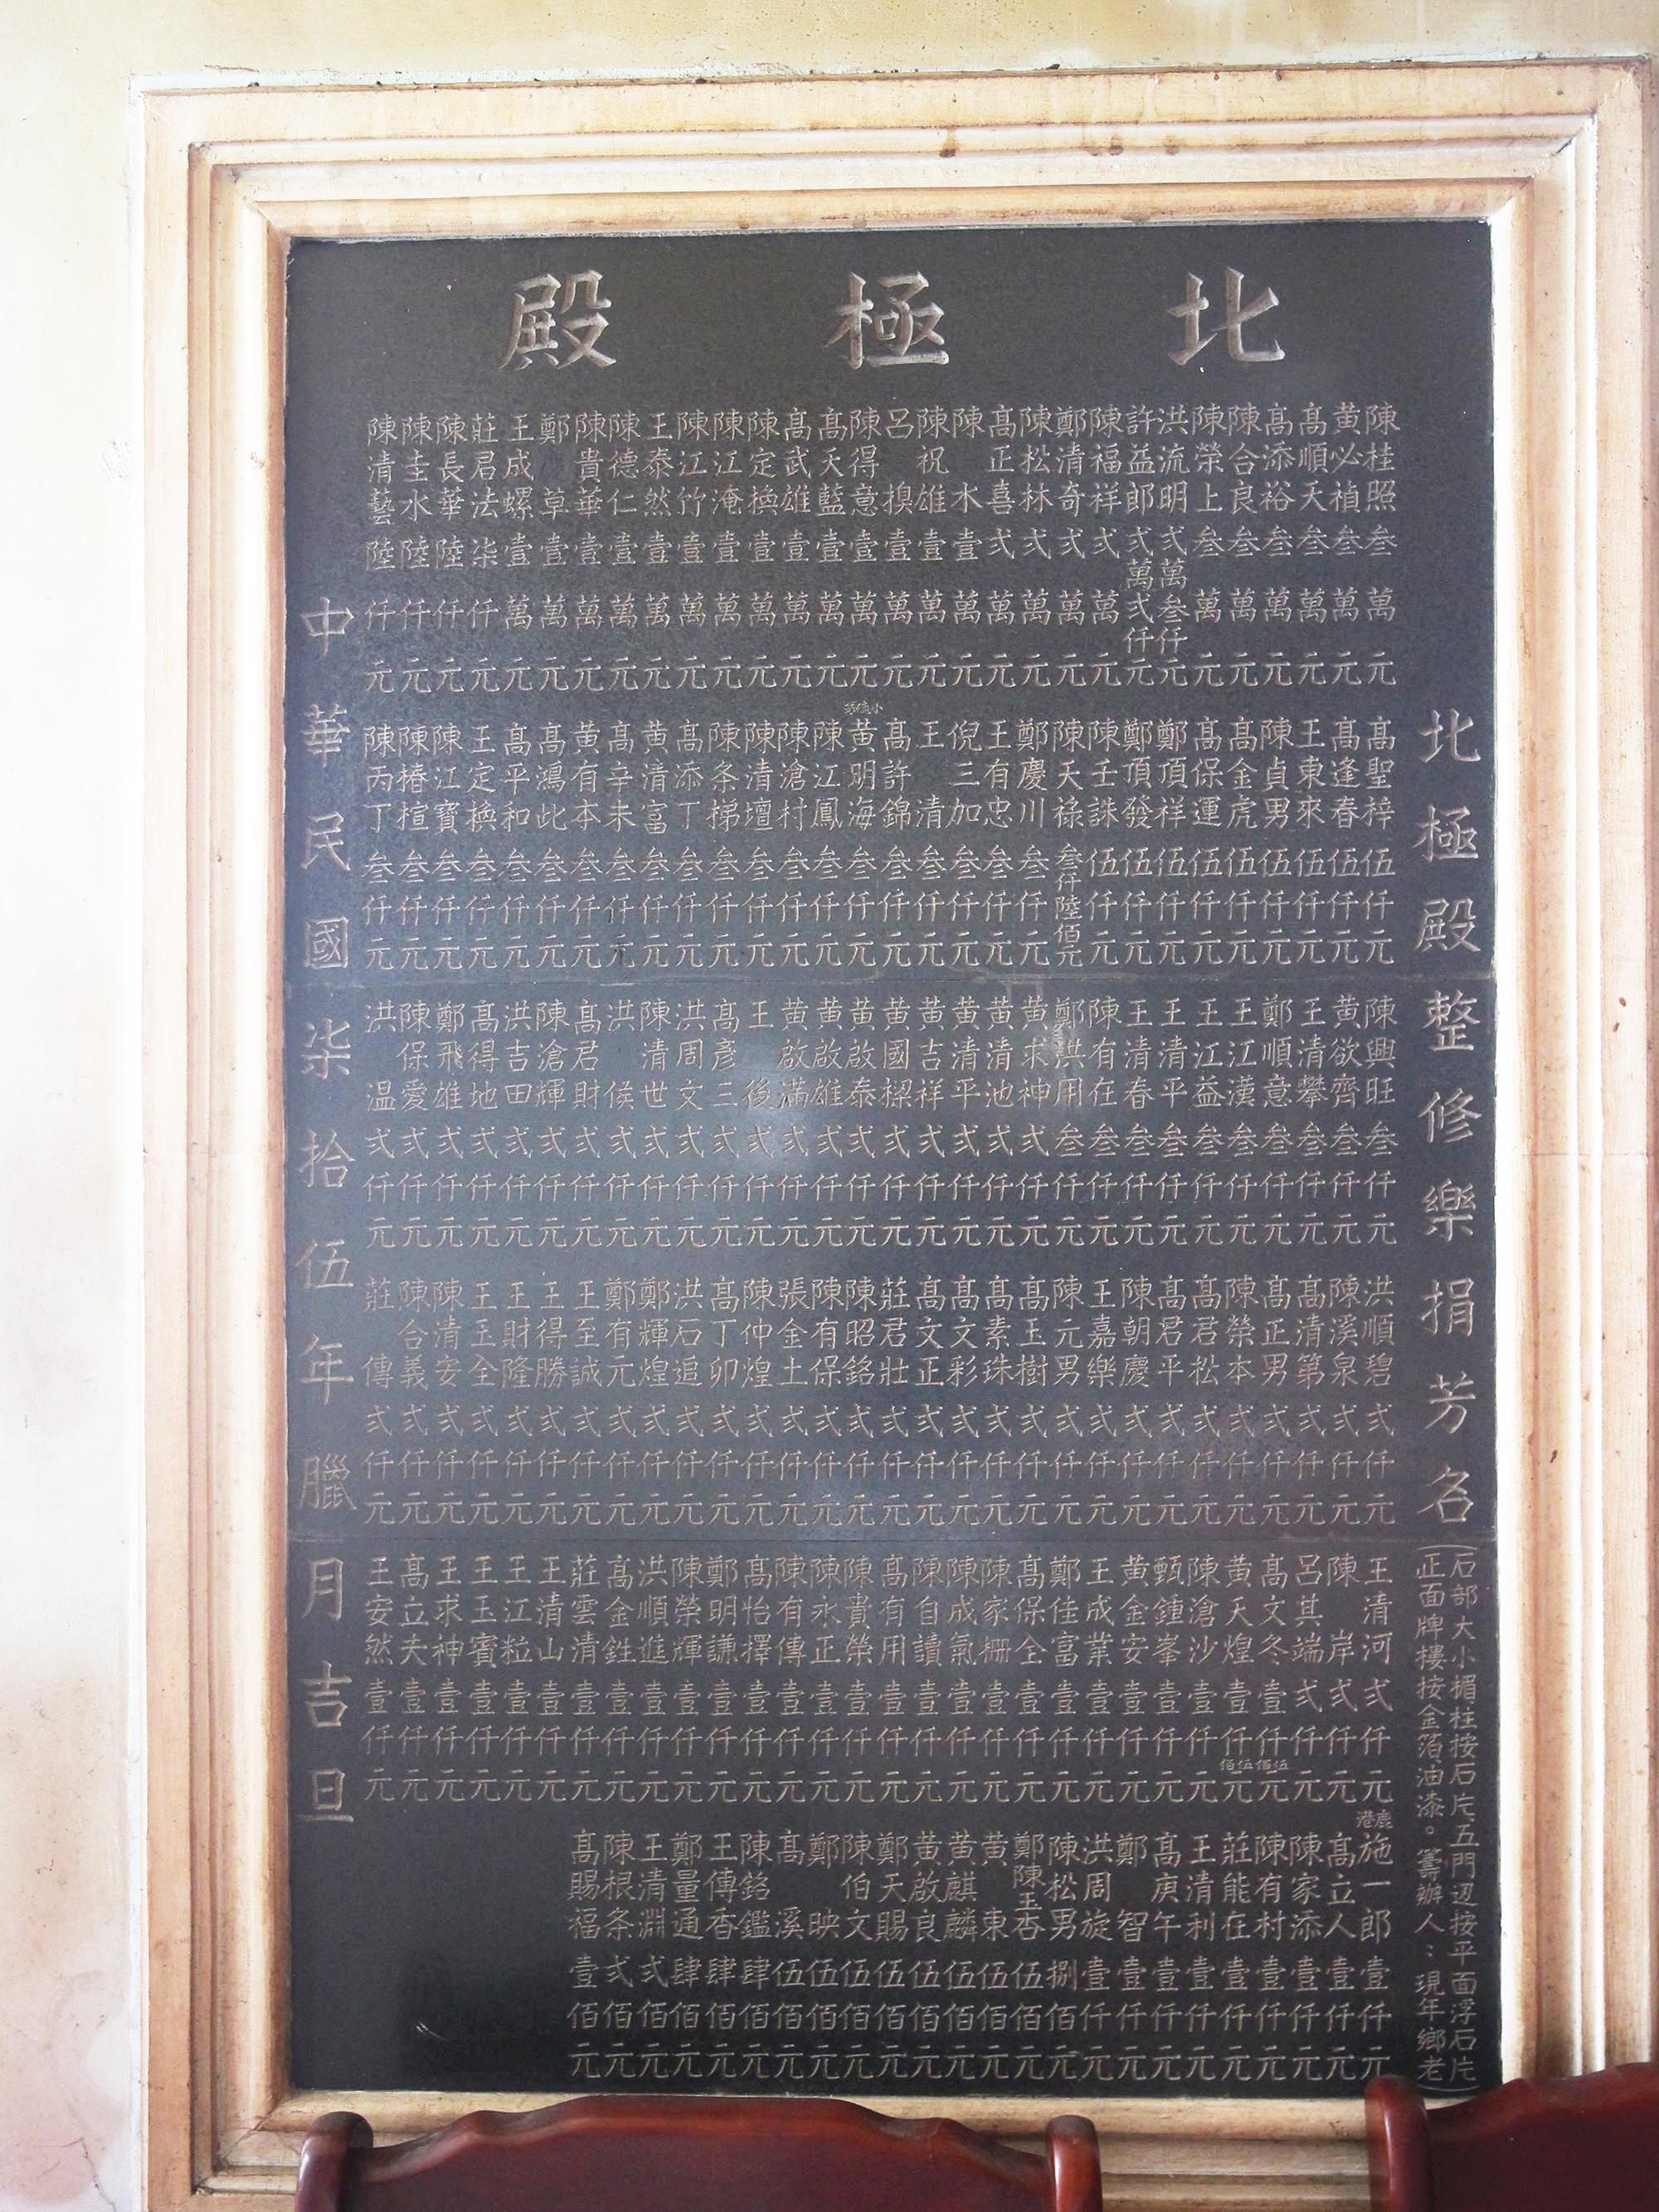 北極殿
北極殿整修樂捐芳名
(石部大小楣柱按石片五門辺按平面浮石片
正面牌樓按金箔油漆。籌辦人：現年鄉老)
陳桂照叁萬元
黃必禎叁萬元
高順天叁萬元
高添裕叁萬元
陳合良叁萬元
陳榮上叁萬元
洪流明弍萬叁仟元
許益郎弍萬弍仟元
陳福祥弍萬元
鄭清奇弍萬元
陳松林弍萬元
高正喜弍萬元
陳水壹萬元
陳祝雄壹萬元
呂摸壹萬元
陳得意壹萬元
高天藍壹萬元
高武雄壹萬元
陳定換壹萬元
陳江淹壹萬元
陳江竹壹萬元
王泰然壹萬元
陳德仁壹萬元
陳貴華壹萬元
鄭草壹萬元
王成螺壹萬元
莊君法柒仟元
陳長華陸仟元
陳圭水陸仟元
陳清藝陸仟元
高聖梓伍仟元
高逢春伍仟元
王東來伍仟元
陳貞男伍仟元
高金虎伍仟元
高保運伍仟元
鄭頂祥伍仟元
鄭頂發伍仟元
陳壬誅伍仟元
陳天祿叁仟陸佰元
鄭慶川叁仟元
王有忠叁仟元
倪三加叁仟元
王清叁仟元
高許錦叁仟元
黃明海叁仟元
陳江鳳叁仟元
陳滄村叁仟元
陳清壇叁仟元
陳条梯叁仟元
高添丁叁仟元
黃清富叁仟元
高辛未叁仟元
黃有本叁仟元
高鴻此叁仟元
高平和叁仟元
王定換叁仟元
陳江寶叁仟元
陳椿楦叁仟元
陳丙丁叁仟元
陳興旺叁仟元
黃欲齊叁仟元
王清攀叁仟元
鄭順意叁仟元
王江漢叁仟元
王江益叁仟元
王清平叁仟元
王清春叁仟元
陳有在叁仟元
鄭洪用叁仟元
黃求神弍仟元
黃清池弍仟元
黃清平弍仟元
黃吉祥弍仟元
黃國樑弍仟元
黃啟泰弍仟元
黃啟雄弍仟元
黃啟滿弍仟元
王後弍仟元
高彥三弍仟元
洪周文弍仟元
陳清世弍仟元
洪侯弍仟元
高君財弍仟元
陳滄輝弍仟元
洪吉田弍仟元
高得地弍仟元
鄭飛雄弍仟元
陳保愛弍仟元
洪温弍仟元
洪順碧弍仟元
陳溪泉弍仟元
高清第弍仟元
高正男弍仟元
陳榮本弍仟元
高君松弍仟元
高君平弍仟元
陳朝慶弍仟元
王嘉樂弍仟元
陳元男弍仟元
高玉樹弍仟元
高素珠弍仟元
高文彩弍仟元
高文正弍仟元
莊君壯弍仟元
陳昭銘弍仟元
陳有保弍仟元
張金土弍仟元
陳仲煌弍仟元
高丁卯弍仟元
洪石追弍仟元
鄭輝煌弍仟元
鄭有元弍仟元
王至誠弍仟元
王得勝弍仟元
王財隆弍仟元
王玉全弍仟元
陳清安弍仟元
陳合義弍仟元
莊傳弍仟元
王清河弍仟元
陳岸弍仟元
呂其端弍仟元
高文冬壹仟伍佰元
黃天煌壹仟伍佰元
陳滄沙壹仟元
甄鍾峯壹仟元
黃金安壹仟元
王成業壹仟元
鄭佳富壹仟元
高保全壹仟元
陳家柵壹仟元
陳成氣壹仟元
陳自讀壹仟元
高有用壹仟元
陳貴榮壹仟元
陳永正壹仟元
陳有傳壹仟元
高怡擇壹仟元
鄭明謙壹仟元
陳榮輝壹仟元
洪順進壹仟元
高金鉎壹仟元
莊雲清壹仟元
王清山壹仟元
王江粒壹仟元
王玉賓壹仟元
王求神壹仟元
高立夫壹仟元
王安然壹仟元
鹿港施一郎壹仟元
高立人壹仟元
陳家添壹仟元
陳有村壹仟元
莊能在壹仟元
王清利壹仟元
高庚午壹仟元
鄭智壹仟元
洪周旋壹仟元
陳松男捌佰元
鄭陳玉杏伍佰元
黃東伍佰元
黃麒麟伍佰元
黃啟良伍佰元
鄭天賜伍佰元
陳伯文伍佰元
鄭映伍佰元
高溪伍佰元
陳銘鑑肆佰元
王傳香肆佰元
鄭量通肆佰元
王清淵弍佰元
陳根条弍佰元
高賜福壹佰元
中華民國柒拾伍年臘月吉旦